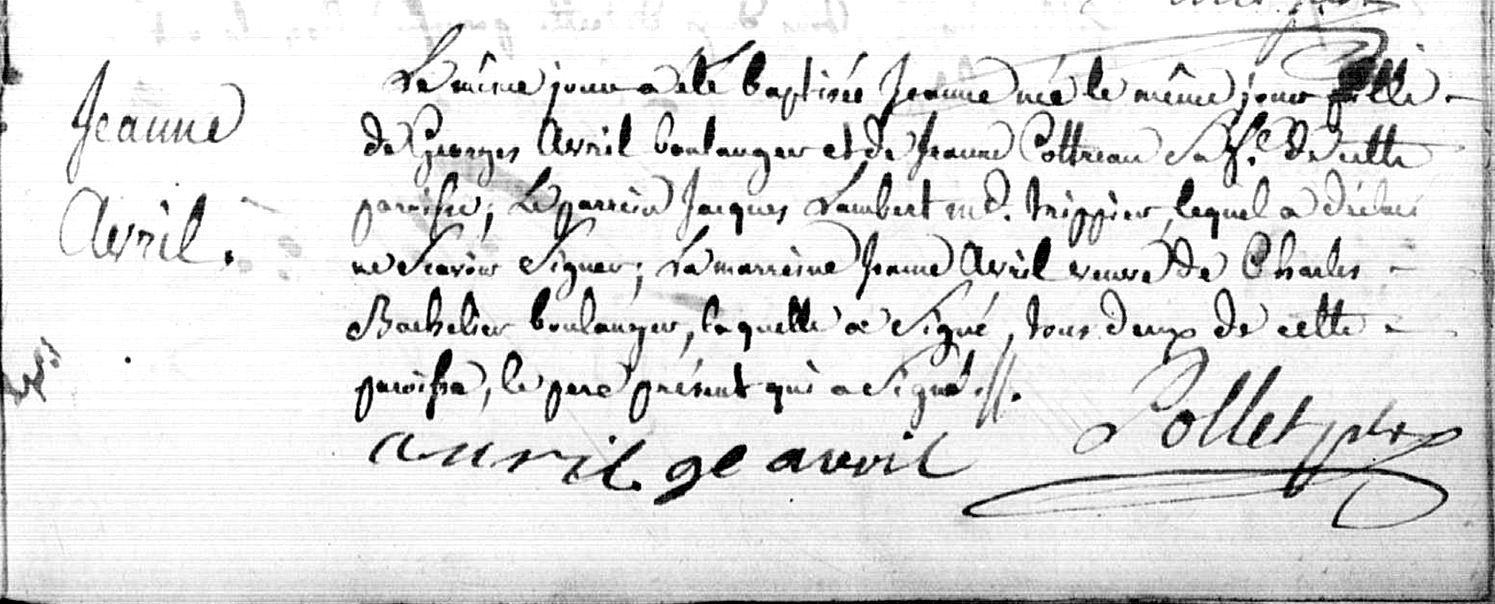 Jeanne
Avril.
Le même jour a été baptisée Jeanne née le même jour fille
de Georges Avril boulanger et de Jeanne Cottreau sa f.e de cette
paroisse; Le parrein Jacques Lambert md. trippier, lequel a déclaré
ne scavoir signer; La marreine Jeanne Avril veuve de Charles
Bachelier boulanger, laquelle a signé, tous deux de cette
paroisse, le pere présent qui a signé.
avril ge avril Pollet ptre